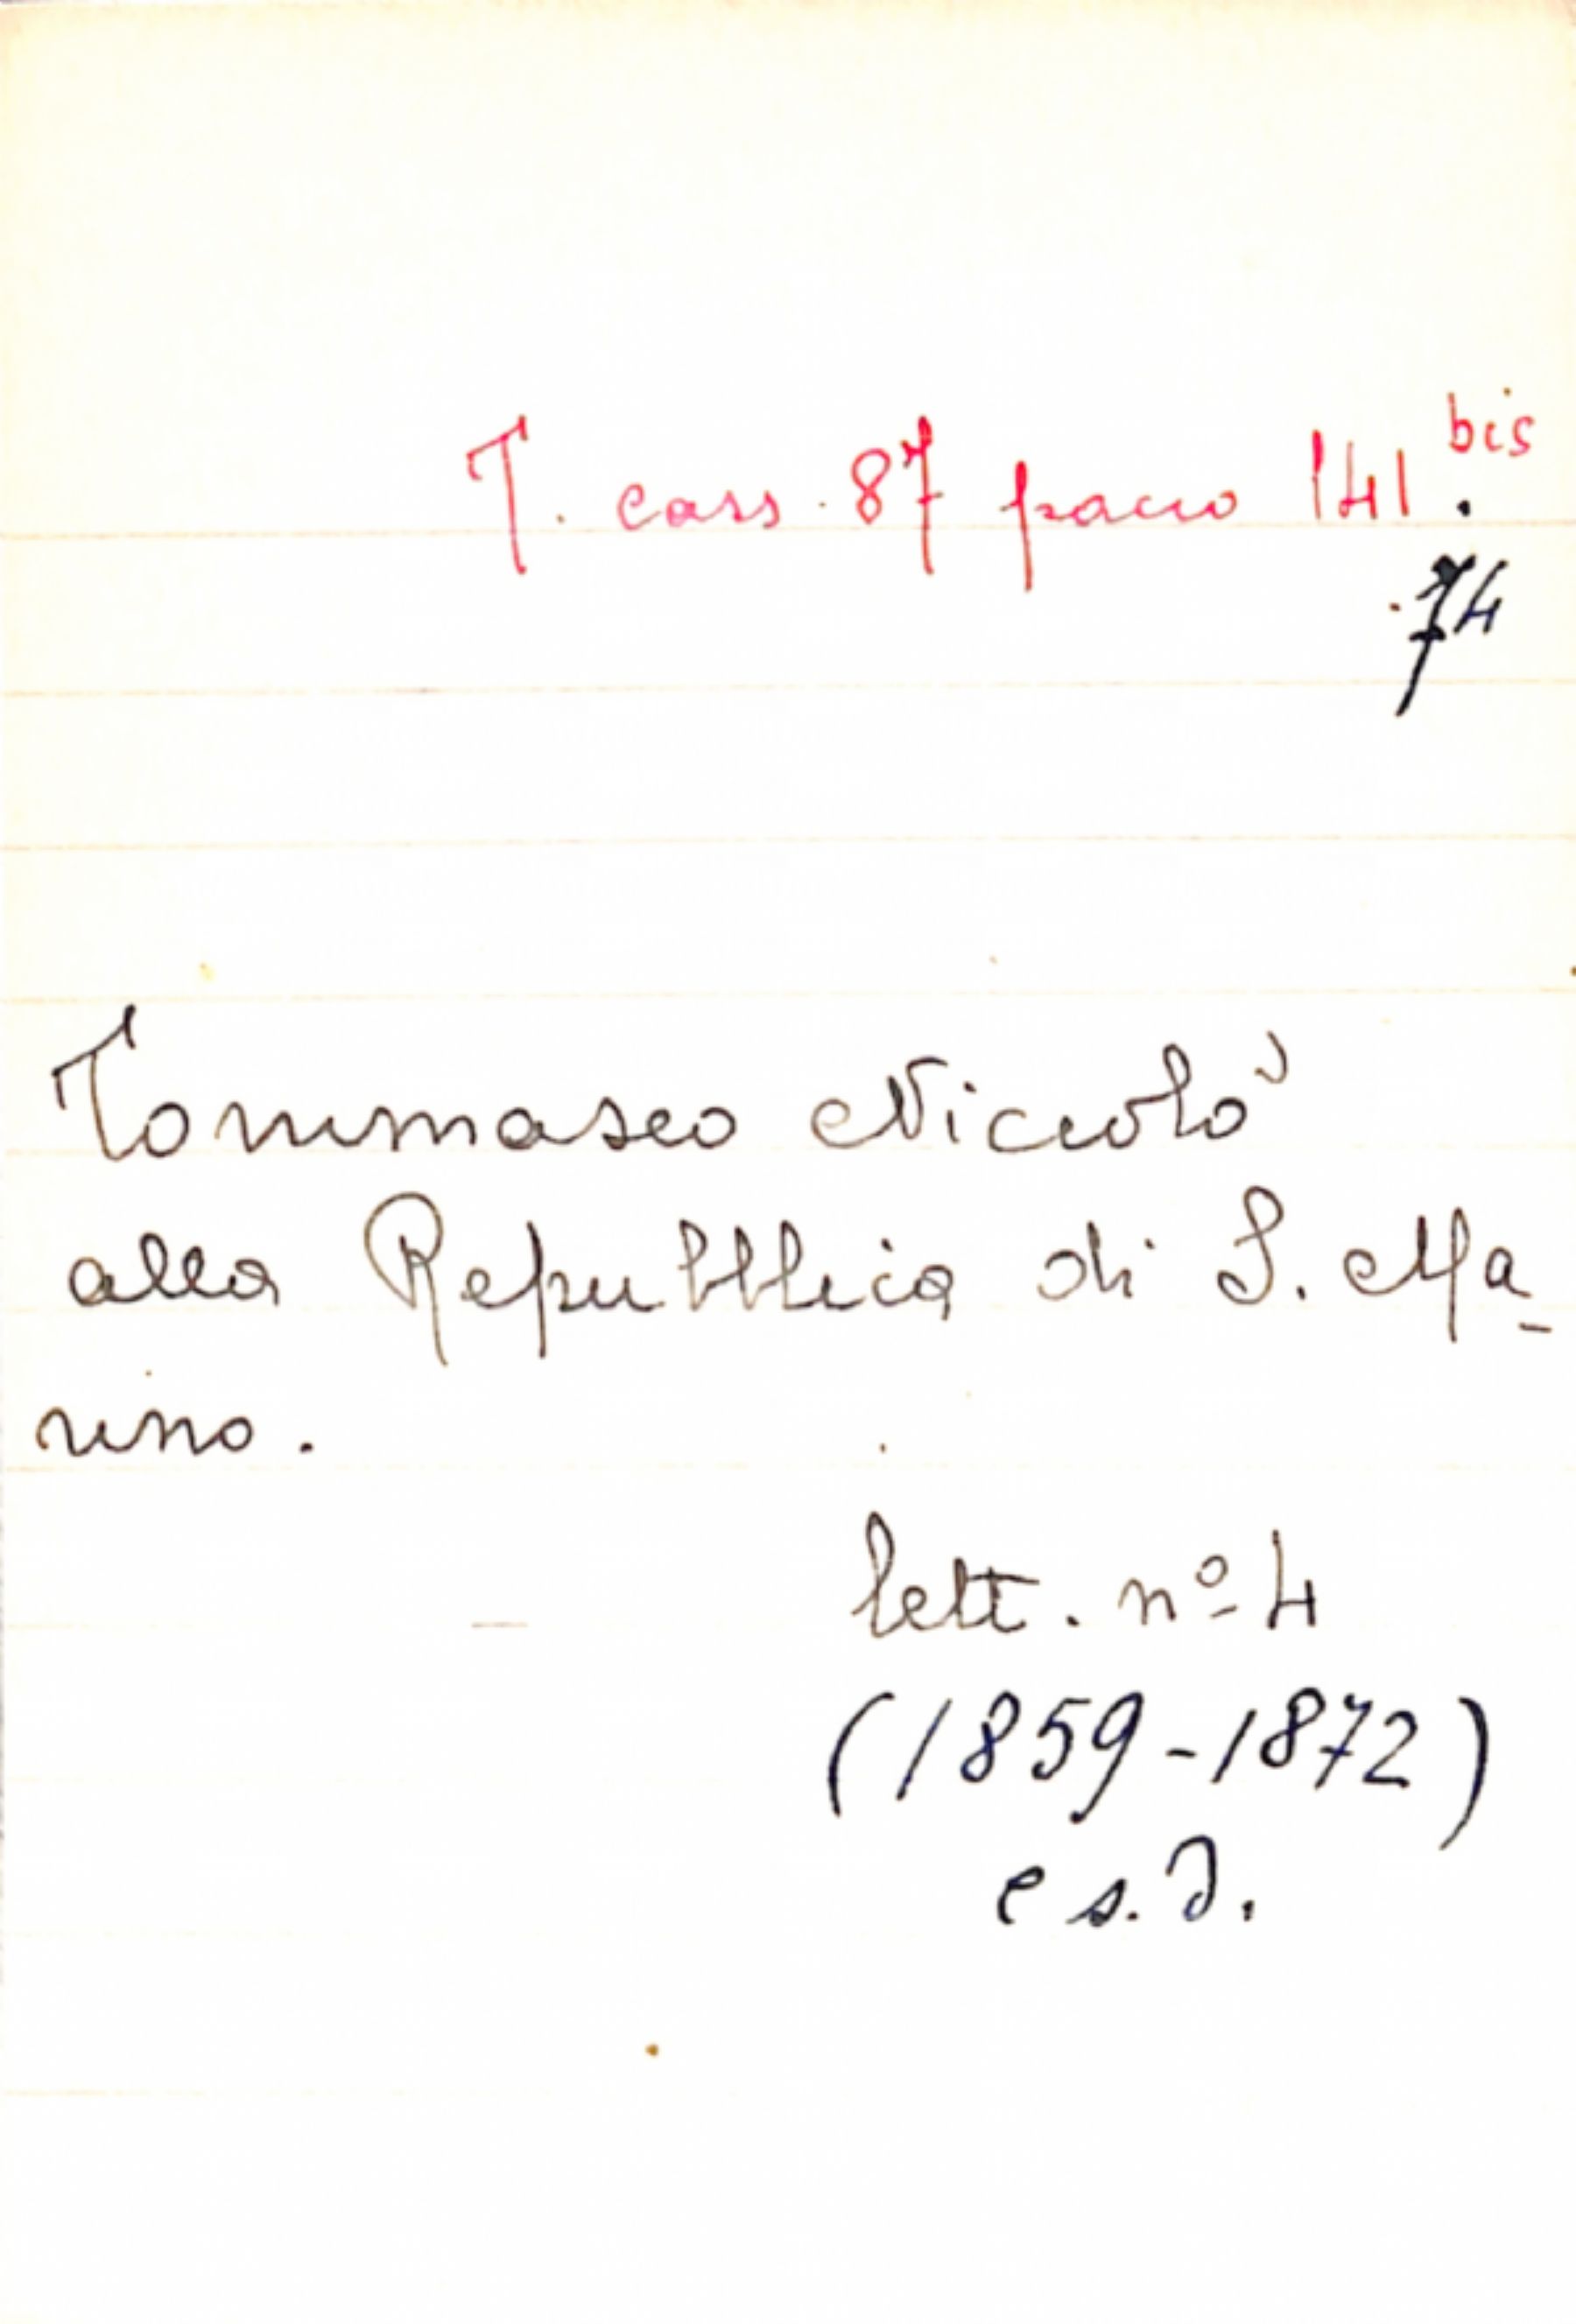 T. cass. 87 pacco 141 bis.
74
Tommaseo Niccolò
alla Repubblica di S. Ma-
rino.
lett. nº 4
(1859-1872)
e s.d.